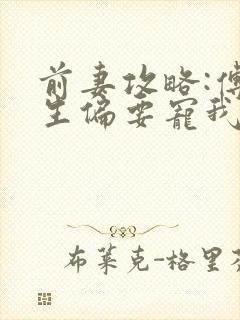 前妻攻略:傅
生偏要宠我
布莱克-格里芬